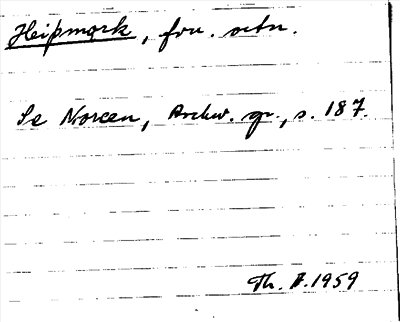 Heiþmǫrk, fvn. octn.
Se Noreen, Archiv. gr., s. 187.
Th. A. 1959